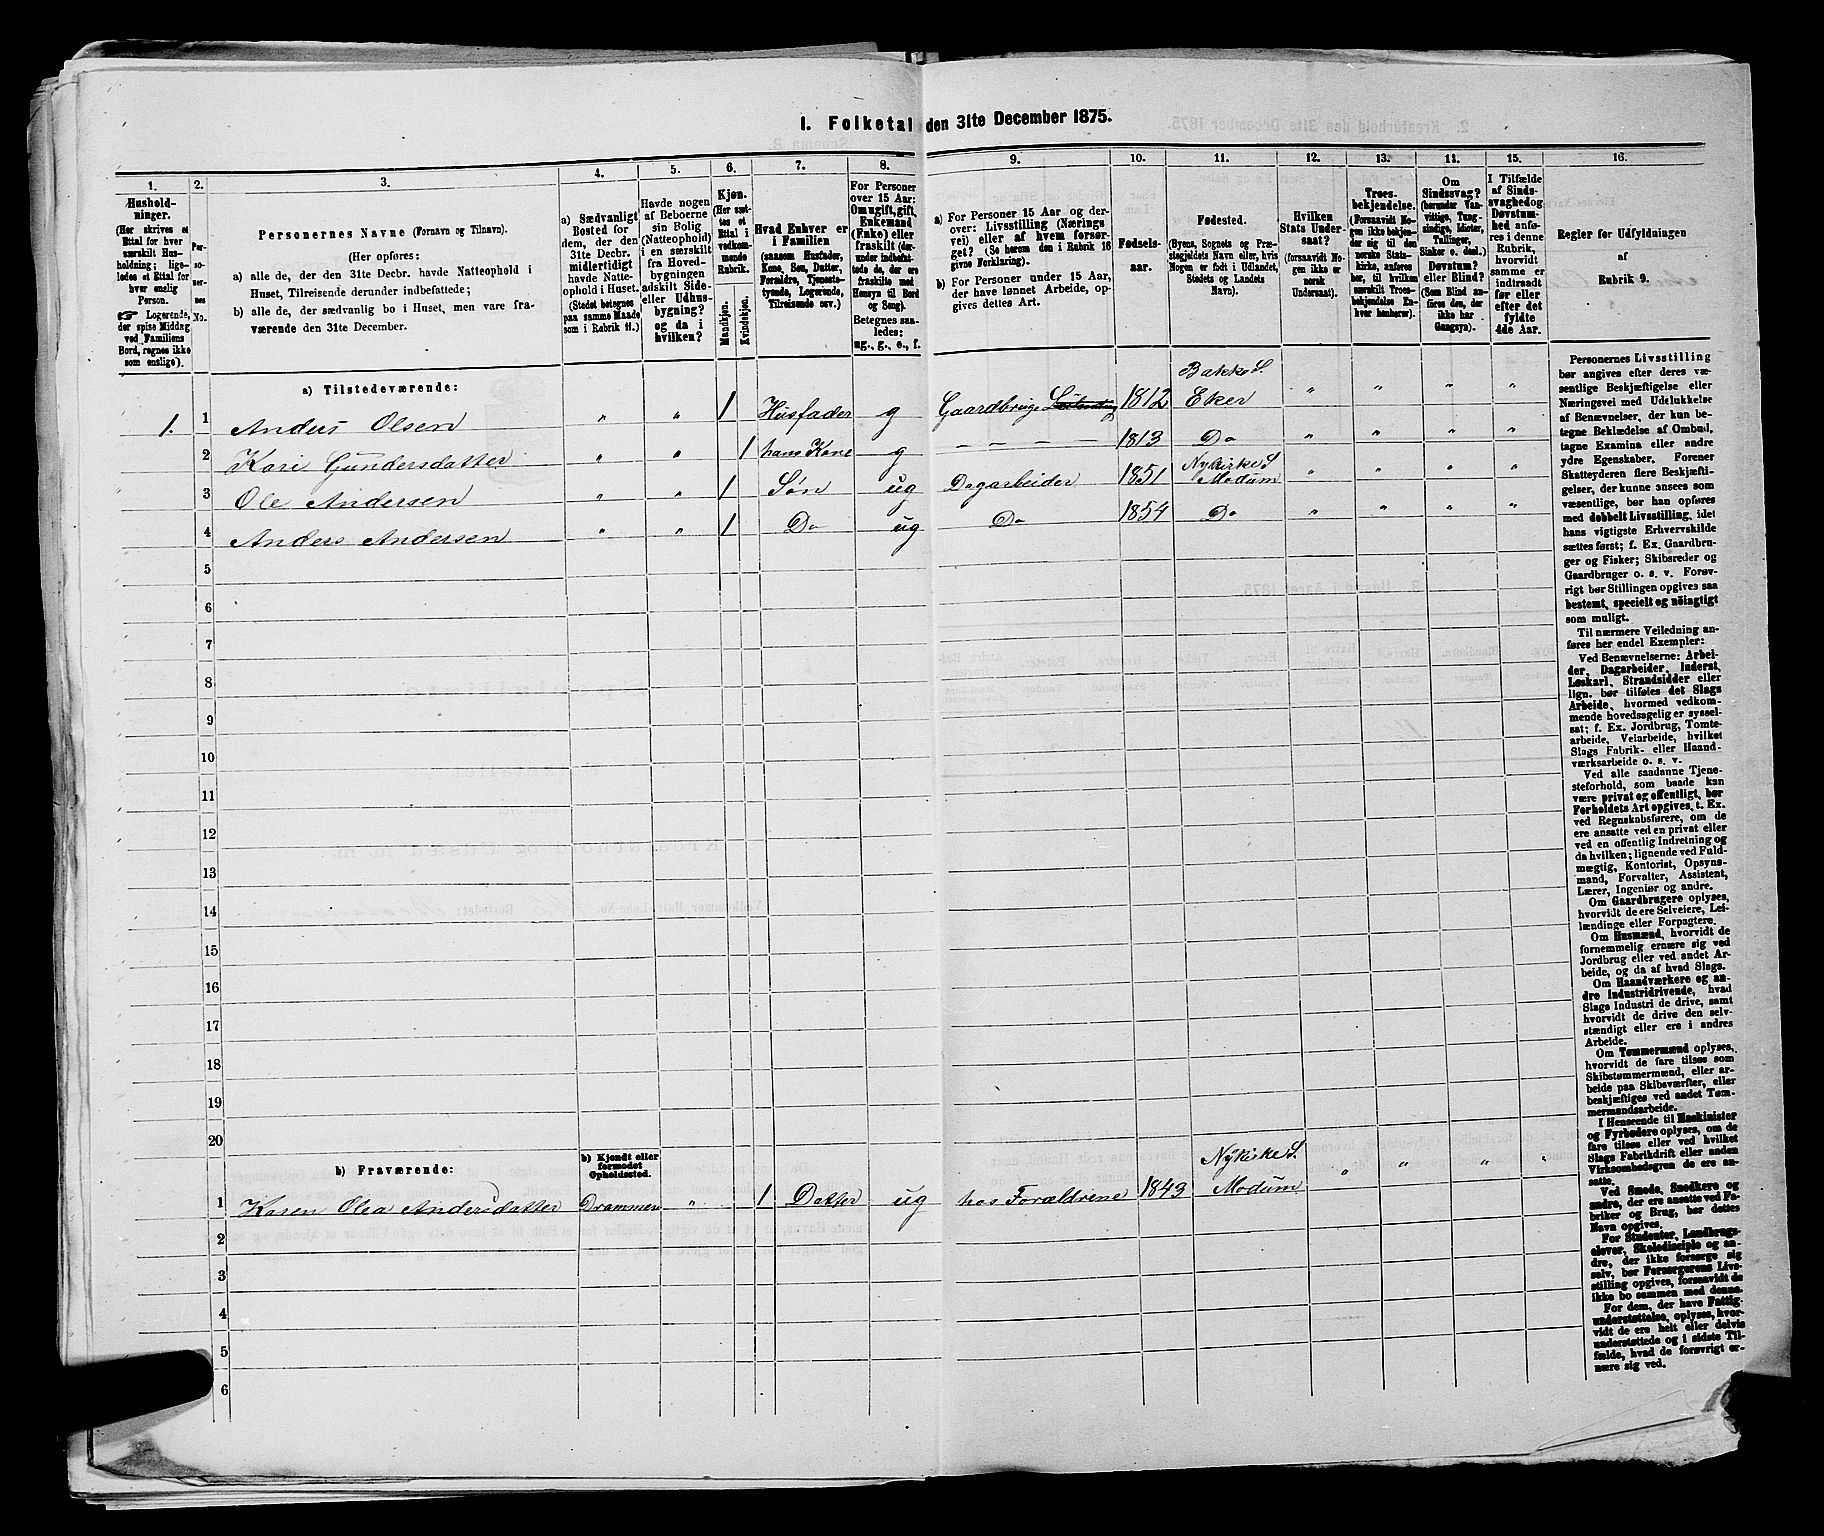 I. Folketal den 31te December 1875.
1. 2. 3. 4. 5. 6. 7. 8. 9. 10. 11. 12. 13. 14. 15. 16.
Husholdninger.
(Her skrives et
Ettal for hver
særskilt Husholdning; ligeledes et Ettal for
hver enslig
Person.
☞ Logerende,
der spise Middag
ved Familiens
Bord, regnes ikke
som enslige).
Personernes No.
Personernes Navne (Fornavn og Tilnavn).
(Her opføres:
a) alle de, der den 31te Decbr. havde Natteophold i
Huset, Tilreisende derunder indbefattede;
b) alle de, der sædvanlig bo i Huset, men vare fraværende den 31te December.
a) Sædvanligt
Bosted for
dem, der den
31te Decbr.
midlertidigt
havde Natteophold i Huset.
(Stedet betegnes
paa samme Maade
som i Rubrik 11.)
Havde nogen
af Beboerne
sin Bolig
(Natteophold)
i en særskilt
fra Hovedbygningen
adskilt Side-
eller Udhusbygning?
og da i
hvilken?
Kjøn.
(Her sættes et
Ettal i
vedkommende
Rubrik.
Mandkjøn.
Kvindekjøn.
Hvad Enhver er
i Familien
(saasom Husfader,
Kone, Søn, Datter,
Forældre, Tjenestetyende, Logerende,
Tilreisende osv.)
For Personer
over 15 Aar:
Om ugift, gift,
Enkemand
(Enke) eller
fraskilt (derunder indbefattede de, der ere
fraskilte med
Hensyn til Bord
og Seng).
Betegnes saaledes:
ug., g., e., f.
a) For Personer 15 Aar og derover: Livsstilling (Næringsvei) eller af hvem forsørget? (Se herom den i Rubrik 16
givne Forklaring).
b) For Personer under 15 Aar,
der have lønnet Arbeide, opgives dettes Art.
Fødselsaar.
Fødested.
(Byens, Sognets og Præstegjeldets Navn eller, hvis
Nogen er født i Udlandet,
Stedets og Landets
Navn).
Hvilken
Stats Undersaat?
(forsaavidt Nogen ikke er
norsk
Undersaat).
Troesbekjendelse.
(Forsaavidt Nogen ikke bekjender sig til den
norske Statskirke, anføres
her, til hvilken
særskilt Troesbekjendelse Enhver henhører).
Om
Sindssvag?
(herunder Vanvittige, Tungsindige, Idioter,
Tullinger,
Sinker o. desl.)
Døvstum?
eller Blind?
(Som Blind anføres den, der
ikke har
Gangsyn).
I Tilfælde
af Sindssvaghed og
Døvstumhed anføres i denne
Rubrik,
hvorvidt
samme er
indtraadt
før eller
efter det
fyldte
4de Aar.
Regler for Udfyldningen
af
Rubrik 9.
a) Tilstedeværende:
1. 1 Anders Olsen " " 1 Husfader g Gaardbruger 1812 Bakke S. Eker " " " "
2 Kari Gundersdatter " " 1 hans Kone g — — — — 1813 Do " " " "
3 Ole Andersen " " 1 Søn ug Dagarbeider 1851 Nykirke S. Modum " " " "
4 Anders Andersen " " 1 Do ug Do 1854 Do " " " "
5
6
7
8
9
10
11
12
13
14
15
16
17
18
19
20
b) Fraværende:
b) Kjendt eller
formodet
Opholdssted.
1 Karen Olea Andersdatter Drammen " 1 Datter ug hos Forældrene 1843 Nykirke S. Modum " " " "
2
3
4
5
6
Personernes Livsstilling
bør angives efter deres væsentlige Beskjæftigelse eller
Næringsvei med Udelukkelse
af Benævnelser, der kun betegne Beklædelse af Ombud,
tagne Examina eller andre
ydre Egenskaber. Forener
Skatteyderen flere Beskjæftigelser, der kunne ansees som
væsentlige, bør han opføres
med dobbelt Livsstilling, idet
hans vigtigste Erhvervskilde
sættes først; f. Ex. Gaardbruger og Fisker; Skibsreder og
Gaardbruger o. s. v. Forøvrigt bør Stillingen opgives saa
bestemt, specielt og nöiagtigt
som muligt.
Til nærmere Veiledning anføres her endel Exempler:
Ved Benævnelserne: Arbeider, Dagarbeider, Inderst,
Løskarl, Strandsidder eller
lign. bør tilføies det Slags
Arbeide, hvormed vedkommende hovedsagelig er sysselsat; f. Ex. Jordbrug, Tomtearbeide, Veiarbeide, hvilket
Slags Fabrik- eller Haandværksarbeide o. s. v.
Ved alle saadanne Tjenesteforhold, som baade kan
være privat og offentligt, bør
Forholdets Art opgives, t. Ex.
ved Regnskabsførere, om de
ere ansatte ved en privat eller
ved en offentlig Indretning og
da hvilken; lignende ved Fuldmægtig, Kontorist, Opsynsmand, Forvalter, Assistent,
Lærer, Ingeniør og andre.
Om Gaardbrugere oplyses,
hvorvidt de ere Selveiere, Leilændinge eller Forpagtere.
Om Husmænd, hvorvidt de
fornemmelig ernære sig ved
Jordbrug eller ved andet Arbeide, og da af hvad Slags.
Om Haandværkere og andre Industridrivende, hvad
Slags Industri de drive, samt
hvorvidt de drive den selvstændigt eller ere i andres
Arbeide.
Om Tømmermænd oplyses,
hvorvidt de fare tilsøs som
Skibstømmermænd, eller arbeide paa Skibsværfter, eller
beskjæftiges ved andet Tømmermandsarbeide.
I Henseende til Maskinister
og Fyrbødere oplyses, om de
fare tilsøs eller ved hvilket
Slags Fabrikdrift eller anden
Virksomhedsgren de ere ansatte.
Ved Smede, Snedkere og
andre, der ere ansatte ved Fabriker og Brug, bør dettes
Navn opgives.
For Studenter, Landbrugselever, Skoledisciple og andre, der ikke forsørge sig
selv, bør Forsørgerens Livsstilling opgives, forsaavidt de
ikke bo sammen med denne.
For dem, der have Fattigunderstøttelse, oplyses, hvorvidt de ere helt eller delvis
understøttede og i sidste Tilfælde, hvad de forøvrigt ernære sig ved.